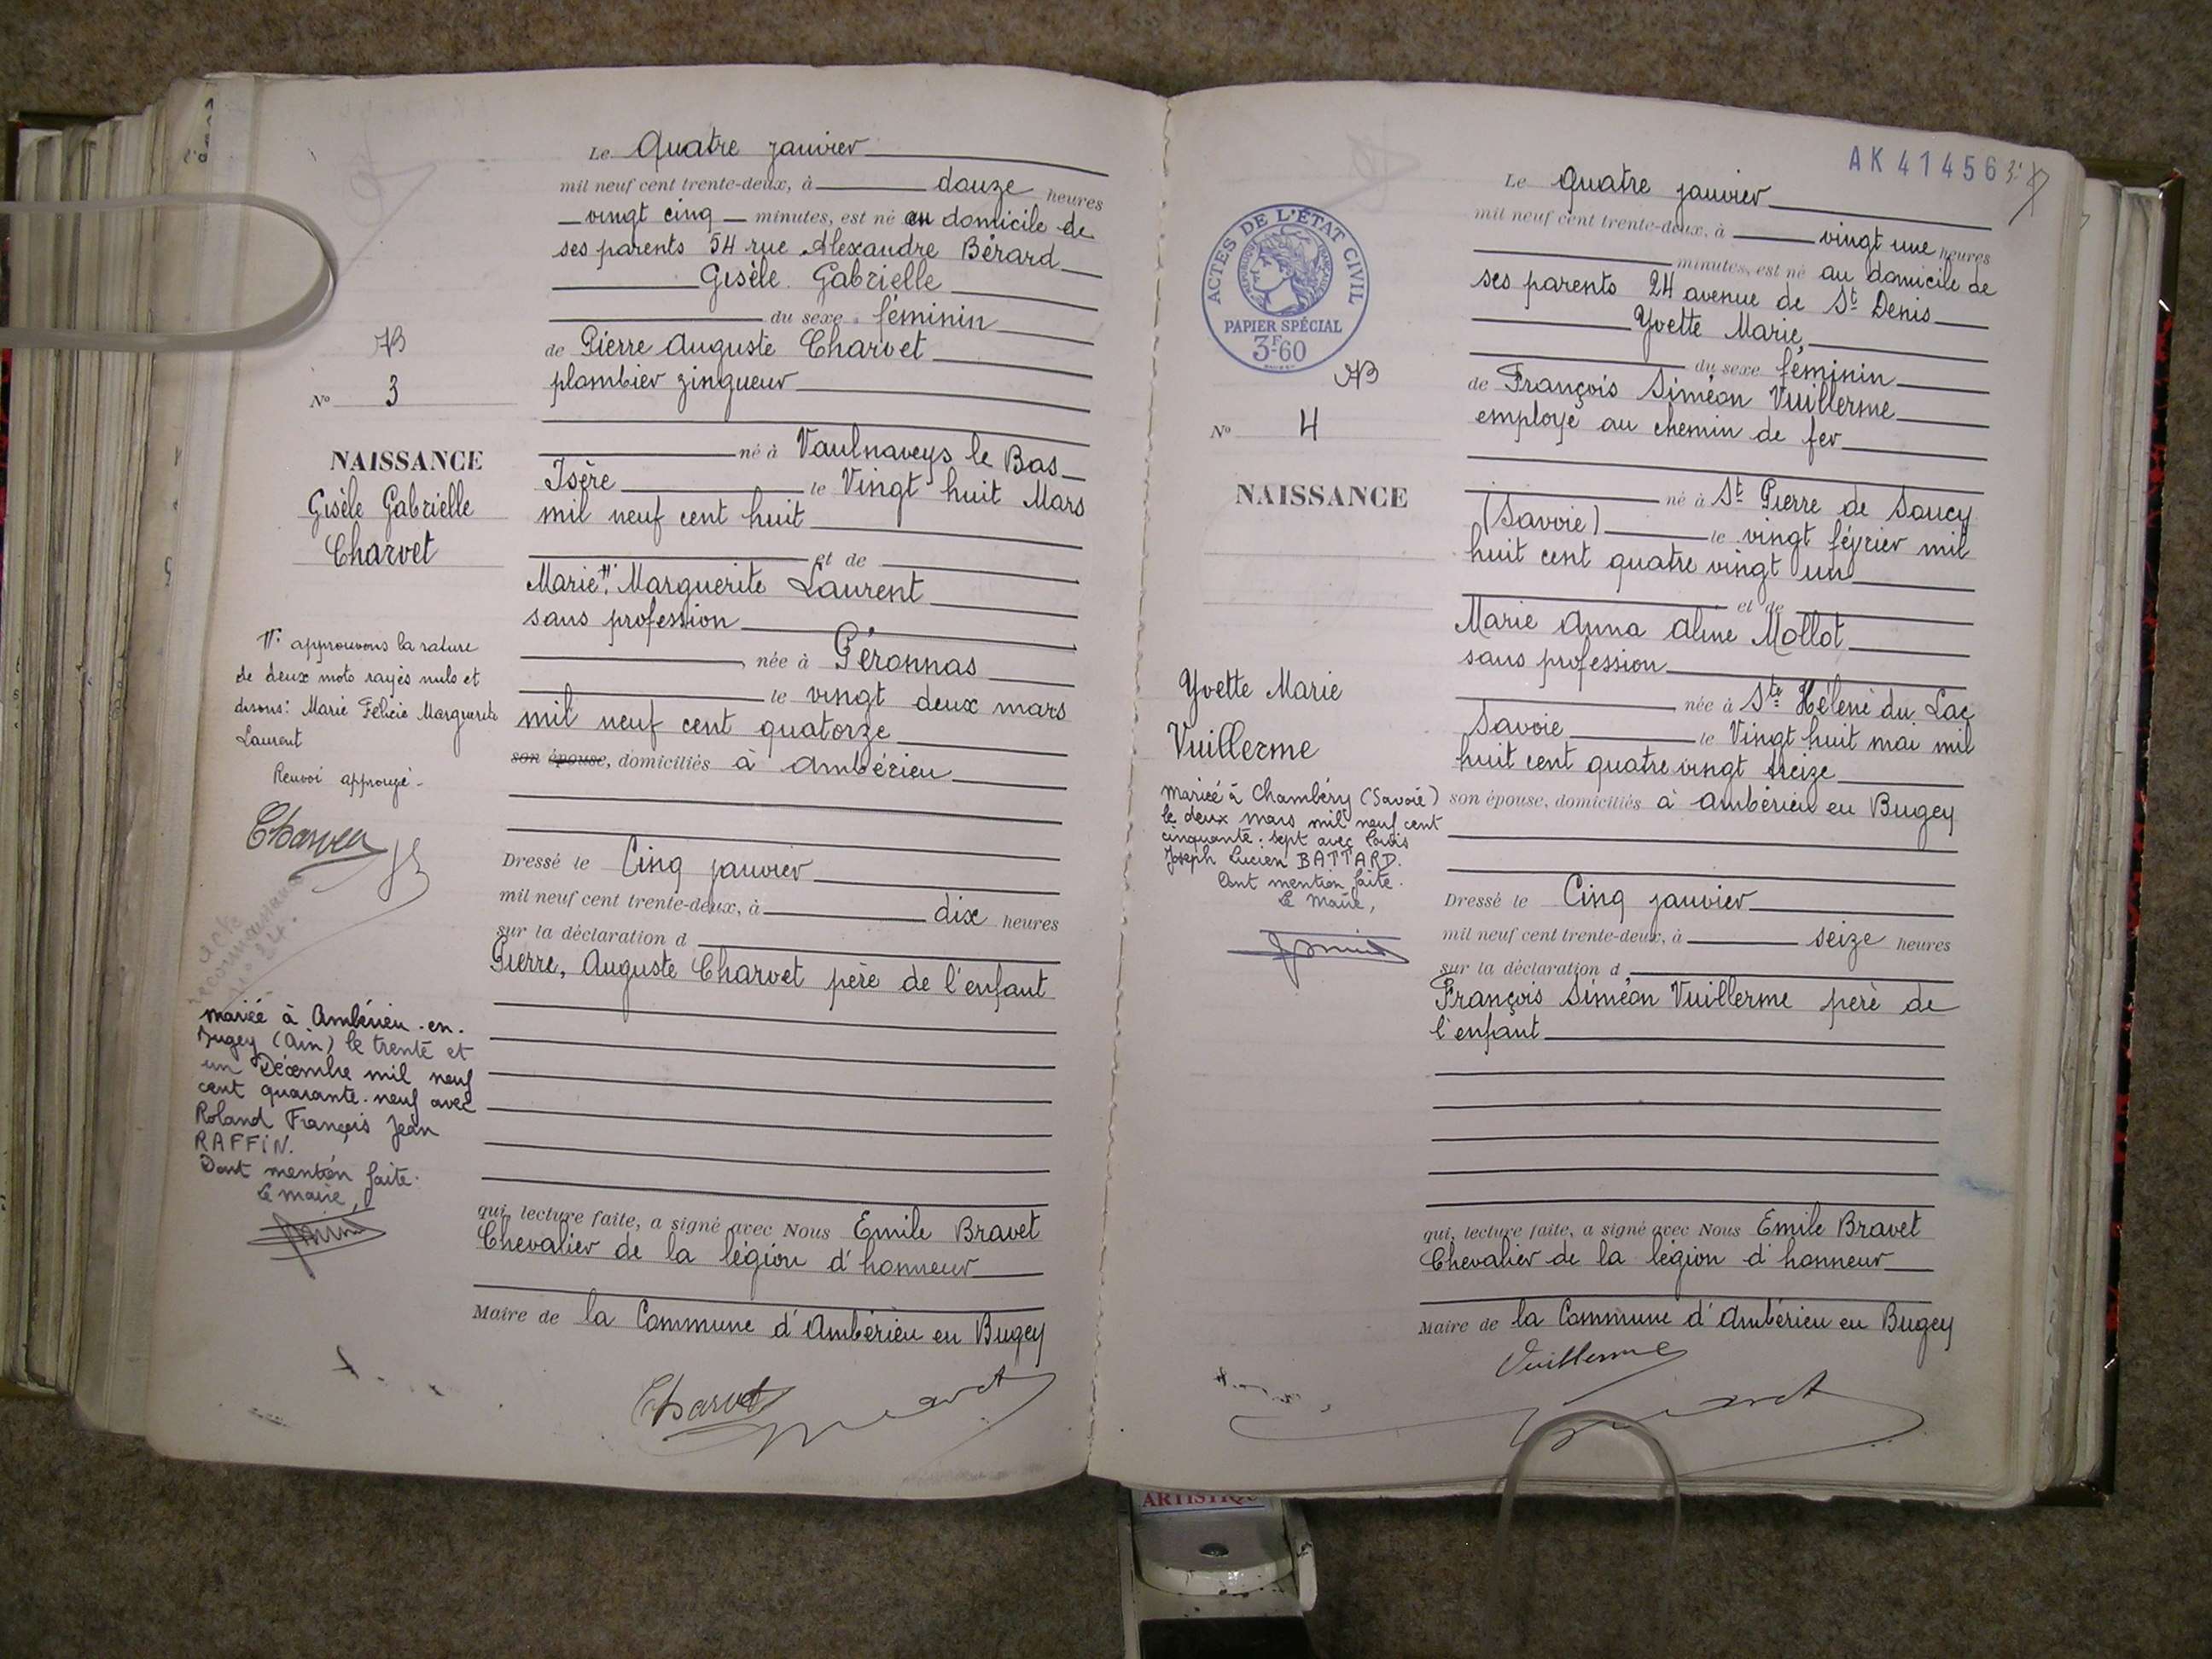 Le Quatre janvier
mil neuf cent trente-deux, à douze heures
vingt cinq minutes, est né au domicile de
ses parents 54 rue Alexandre Bérard
Gisèle Gabrielle
du sexe féminin
de Pierre Auguste Charvet
plombier zingueur
né à Vaulnaveys le Bas
Isère le Vingt huit Mars
mil neuf cent huit
et de
Marie Marguerite Laurent
sans profession
née à Péronnas
le vingt deux mars
mil neuf cent quatorze
son épouse, domiciliés à Ambérieu
Dressé le Cinq janvier
mil neuf cent trente-deux, à dix heures
sur la déclaration d
Pierre, Auguste Charvet père de l'enfant
qui, lecture faite, a signé avec Nous Emile Bravet
Chevalier de la légion d'honneur
Maire de la Commune d'Ambérieu en Bugey
Charvet
N° 3
NAISSANCE
Gisèle Gabrielle
Charvet
approuvons la rature
de deux mots rayés nuls et
disons: Marie Félicie Marguerite
Laurent
Renvoi approuvé
Charvet
acte
reconnaissance
n° 24.
mariée à Ambérieu-en-
Bugey (Ain) le trente et
un Décembre mil neuf
cent quarante-neuf avec
Roland François Jean
RAFFIN.
Dont mention faite.
Le maire,
AK 41456
ACTES DE L'ÉTAT CIVIL
RÉPUBLIQUE FRANÇAISE
PAPIER SPÉCIAL
3F60
Le Quatre janvier
mil neuf cent trente-deux, à vingt une heures
minutes, est né au domicile de
ses parents 24 avenue de St Denis
Yvette Marie,
du sexe féminin
de François Siméon Vuillerme
employé au chemin de fer
né à St Pierre de Soucy
(Savoie) le vingt février mil
huit cent quatre vingt un
et de
Marie Anna Aline Mollot
sans profession
née à Ste Hélène du Lac
Savoie le Vingt huit mai mil
huit cent quatre vingt treize
son épouse, domiciliés à Ambérieu en Bugey
Dressé le Cinq janvier
mil neuf cent trente-deux, à seize heures
sur la déclaration d
François Siméon Vuillerme père de
l'enfant
qui, lecture faite, a signé avec Nous Emile Bravet
Chevalier de la légion d'honneur
Maire de la Commune d'Ambérieu en Bugey
Vuillerme
N° 4
NAISSANCE
Yvette Marie
Vuillerme
mariée à Chambéry (Savoie)
le deux mars mil neuf cent
cinquante-sept avec Louis
Joseph Lucien BATTARD.
Dont mention faite.
Le Maire,
ARTISTIQU